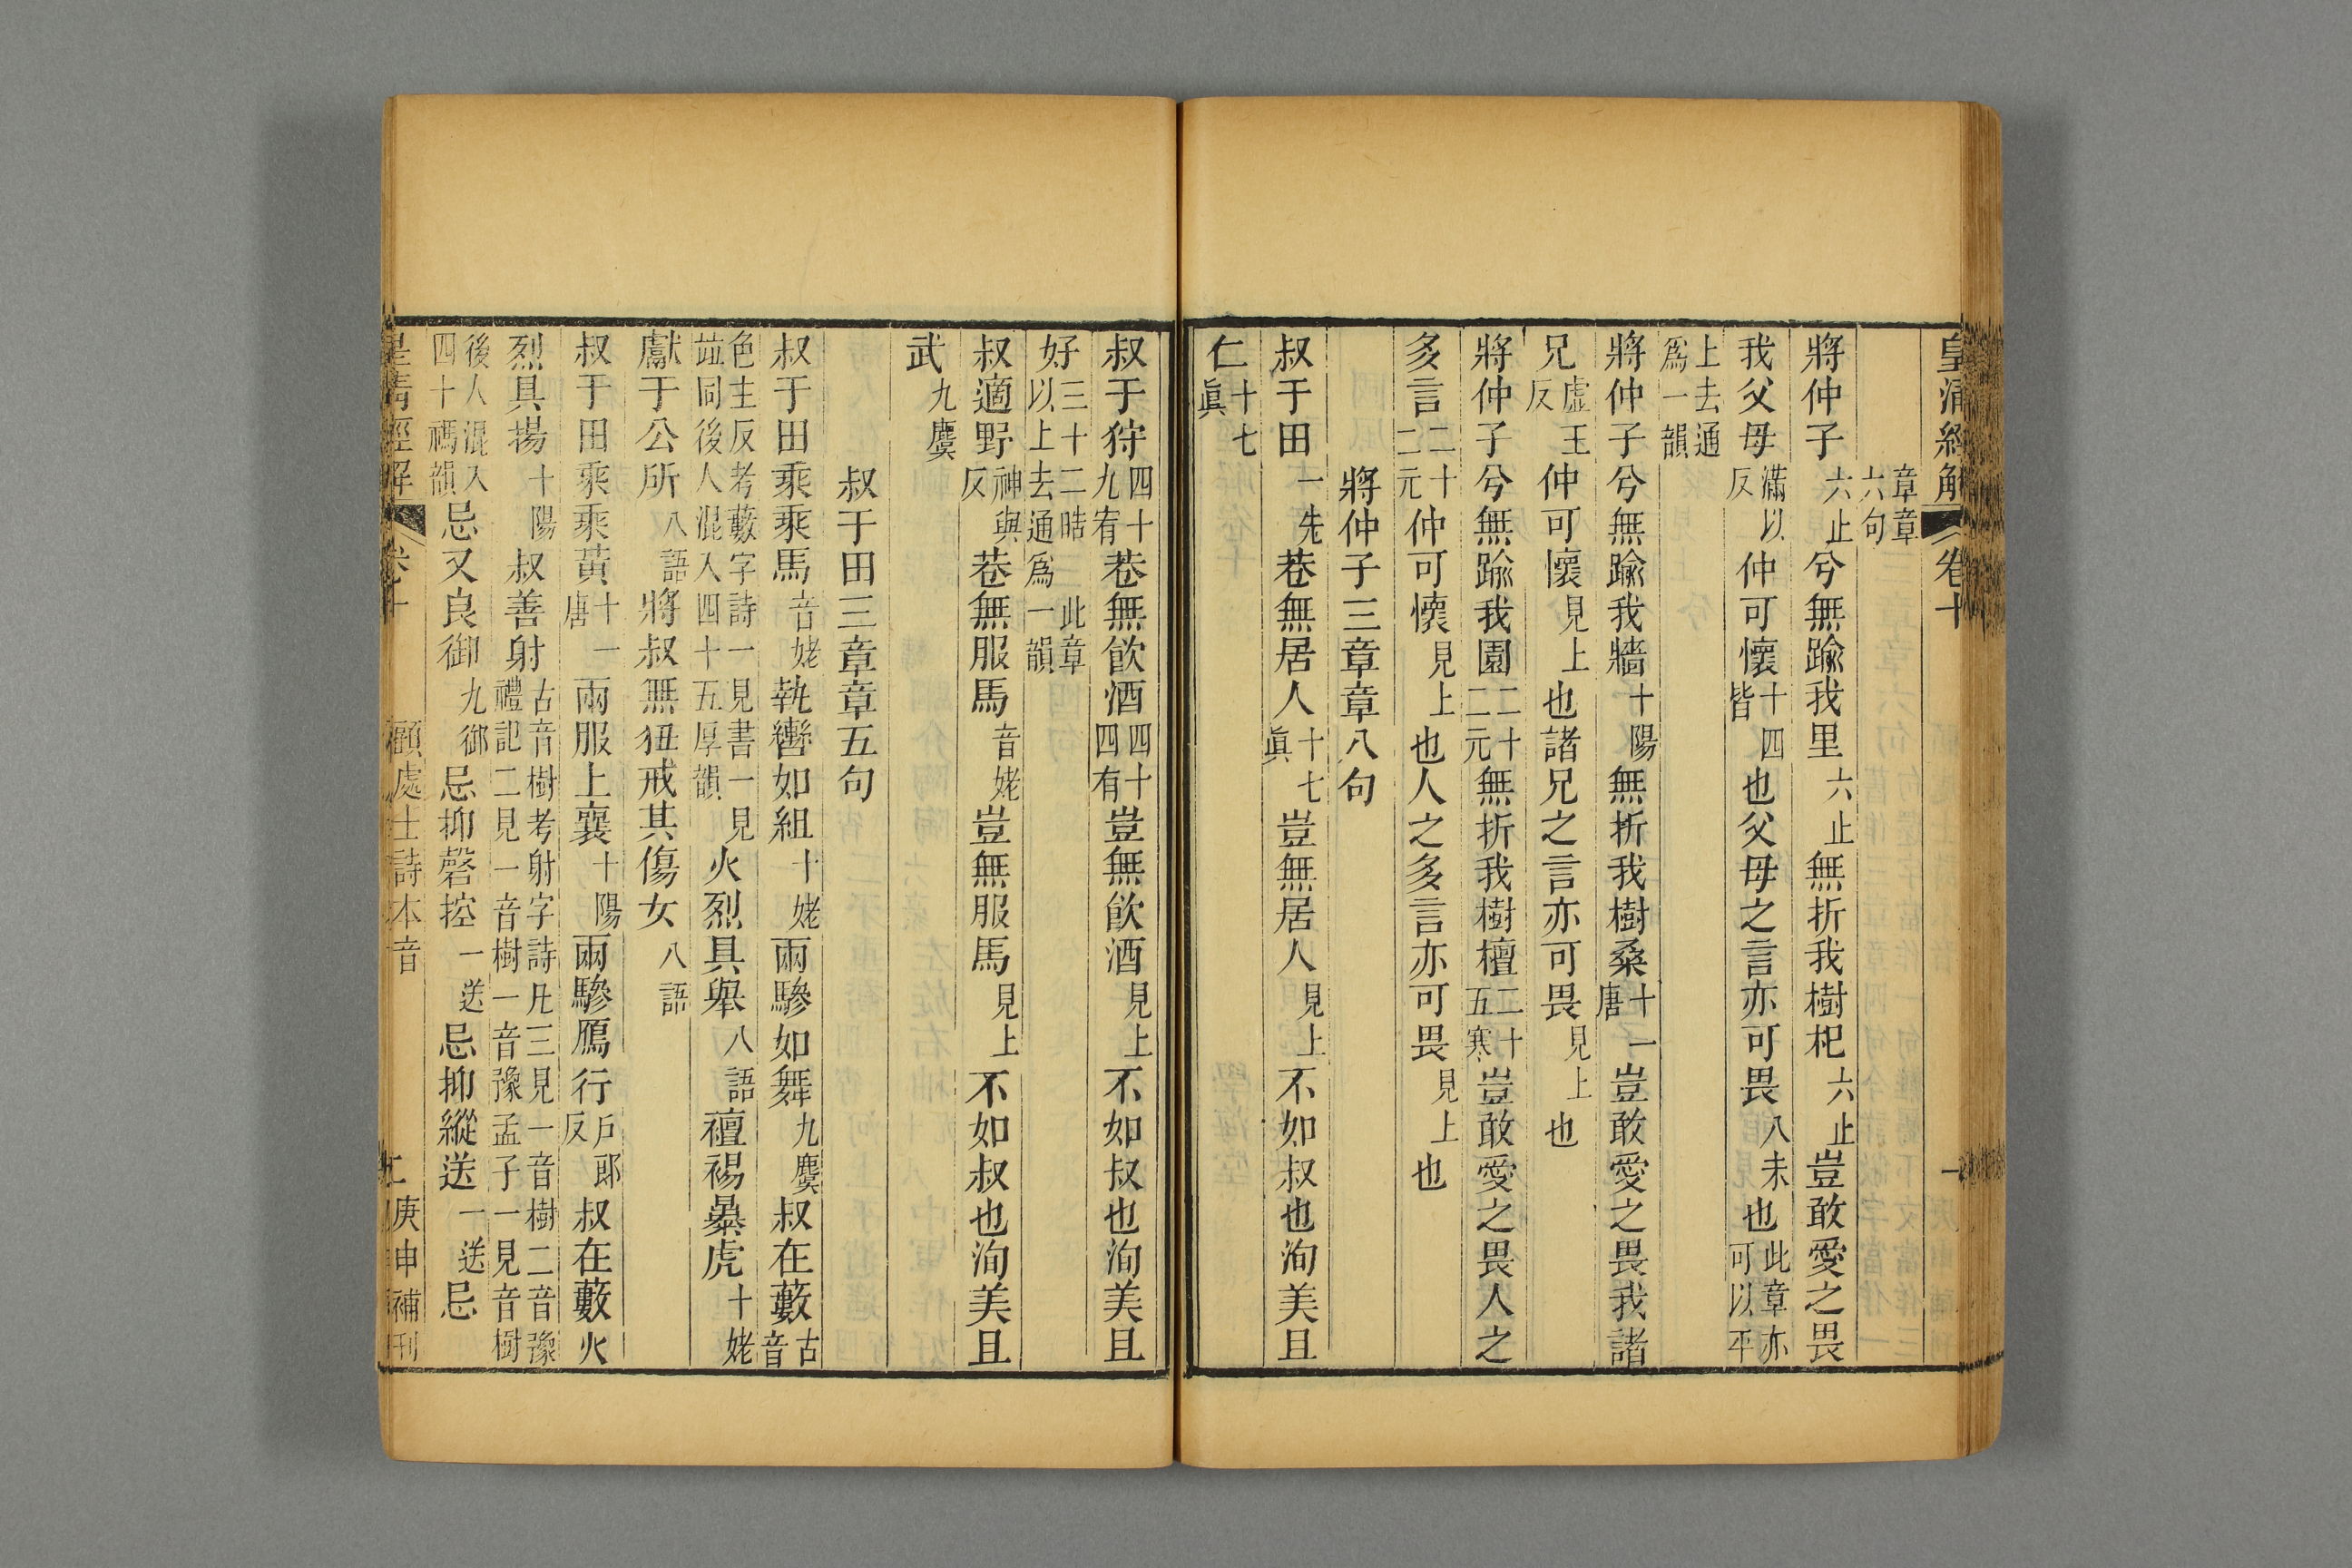 皇清經解 卷十 一
章章六句
將仲子六止兮無踰我里六止無折我樹杞六止豈敢愛之畏
我父母滿以反仲可懷十四皆也父母之言亦可畏八未也此章亦可以平
上去通爲一韻
將仲子兮無踰我牆十陽無折我樹桑十一唐豈敢愛之畏我諸
兄虛王反仲可懷見上也諸兄之言亦可畏見上也
將仲子兮無踰我園二十二元無折我樹檀二十五寒豈敢愛之畏人之
多言二十二元仲可懷見上也人之多言亦可畏見上也
將仲子三章章八句
叔于田一先巷無居人十七眞豈無居人見上不如叔也洵美且
仁十七眞
叔于狩四十九宥巷無飲酒四十四有豈無飲酒見上不如叔也洵美且
好三十二晧此章以上去通爲一韻
叔適野神與反巷無服馬音姥豈無服馬見上不如叔也洵美且
武九麌
叔于田三章章五句
叔于田乘乘馬音姥執轡如組十姥兩驂如舞九麌叔在藪古音
色主反考藪字詩一見書一見竝同後人混入四十五厚韻火烈具舉八語襢裼暴虎十姥
獻于公所八語將叔無狃戒其傷女八語
叔于田乘乘黃十一唐兩服上襄十陽兩驂鴈行戶郎反叔在藪火
烈具揚十陽叔善射古音樹考射字詩凡三見一音樹二音豫禮記二見一音樹一音豫孟子一見音樹
後人混入四十禡韻忌又良御九御忌抑磬控一送忌抑縱送一送忌
皇清經解 卷十 顧處士詩本音 二 庚申補刊